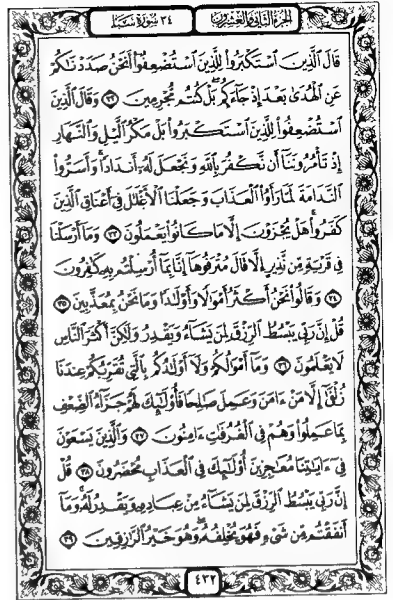 الجزء الثاني والعشرون
٣٤ سورة سبأ
قَالَ ٱلَّذِينَ ٱسْتَكْبَرُوا۟ لِلَّذِينَ ٱسْتُضْعِفُوٓا۟ أَنَحْنُ صَدَدْنَـٰكُمْ
عَنِ ٱلْهُدَىٰ بَعْدَ إِذْ جَآءَكُم ۖ بَلْ كُنتُم مُّجْرِمِينَ ﴿٣٢﴾ وَقَالَ ٱلَّذِينَ
ٱسْتُضْعِفُوا۟ لِلَّذِينَ ٱسْتَكْبَرُوا۟ بَلْ مَكْرُ ٱلَّيْلِ وَٱلنَّهَارِ
إِذْ تَأْمُرُونَنَآ أَن نَّكْفُرَ بِٱللَّهِ وَنَجْعَلَ لَهُۥٓ أَندَادًا ۚ وَأَسَرُّوا۟
ٱلنَّدَامَةَ لَمَّا رَأَوُا۟ ٱلْعَذَابَ وَجَعَلْنَا ٱلْأَغْلَـٰلَ فِىٓ أَعْنَاقِ ٱلَّذِينَ
كَفَرُوا۟ ۚ هَلْ يُجْزَوْنَ إِلَّا مَا كَانُوا۟ يَعْمَلُونَ ﴿٣٣﴾ وَمَآ أَرْسَلْنَا
فِى قَرْيَةٍ مِّن نَّذِيرٍ إِلَّا قَالَ مُتْرَفُوهَآ إِنَّا بِمَآ أُرْسِلْتُم بِهِۦ كَـٰفِرُونَ
﴿٣٤﴾ وَقَالُوا۟ نَحْنُ أَكْثَرُ أَمْوَٰلًا وَأَوْلَـٰدًا وَمَا نَحْنُ بِمُعَذَّبِينَ ﴿٣٥﴾
قُلْ إِنَّ رَبِّى يَبْسُطُ ٱلرِّزْقَ لِمَن يَشَآءُ وَيَقْدِرُ وَلَـٰكِنَّ أَكْثَرَ ٱلنَّاسِ
لَا يَعْلَمُونَ ﴿٣٦﴾ وَمَآ أَمْوَٰلُكُمْ وَلَآ أَوْلَـٰدُكُم بِٱلَّتِى تُقَرِّبُكُمْ عِندَنَا
زُلْفَىٰٓ إِلَّا مَنْ ءَامَنَ وَعَمِلَ صَـٰلِحًا فَأُو۟لَـٰٓئِكَ لَهُمْ جَزَآءُ ٱلضِّعْفِ
بِمَا عَمِلُوا۟ وَهُمْ فِى ٱلْغُرُفَـٰتِ ءَامِنُونَ ﴿٣٧﴾ وَٱلَّذِينَ يَسْعَوْنَ
فِىٓ ءَايَـٰتِنَا مُعَـٰجِزِينَ أُو۟لَـٰٓئِكَ فِى ٱلْعَذَابِ مُحْضَرُونَ ﴿٣٨﴾ قُلْ
إِنَّ رَبِّى يَبْسُطُ ٱلرِّزْقَ لِمَن يَشَآءُ مِنْ عِبَادِهِۦ وَيَقْدِرُ لَهُۥ ۚ وَمَآ
أَنفَقْتُم مِّن شَىْءٍ فَهُوَ يُخْلِفُهُۥ ۖ وَهُوَ خَيْرُ ٱلرَّٰزِقِينَ ﴿٣٩﴾
٤٣٢